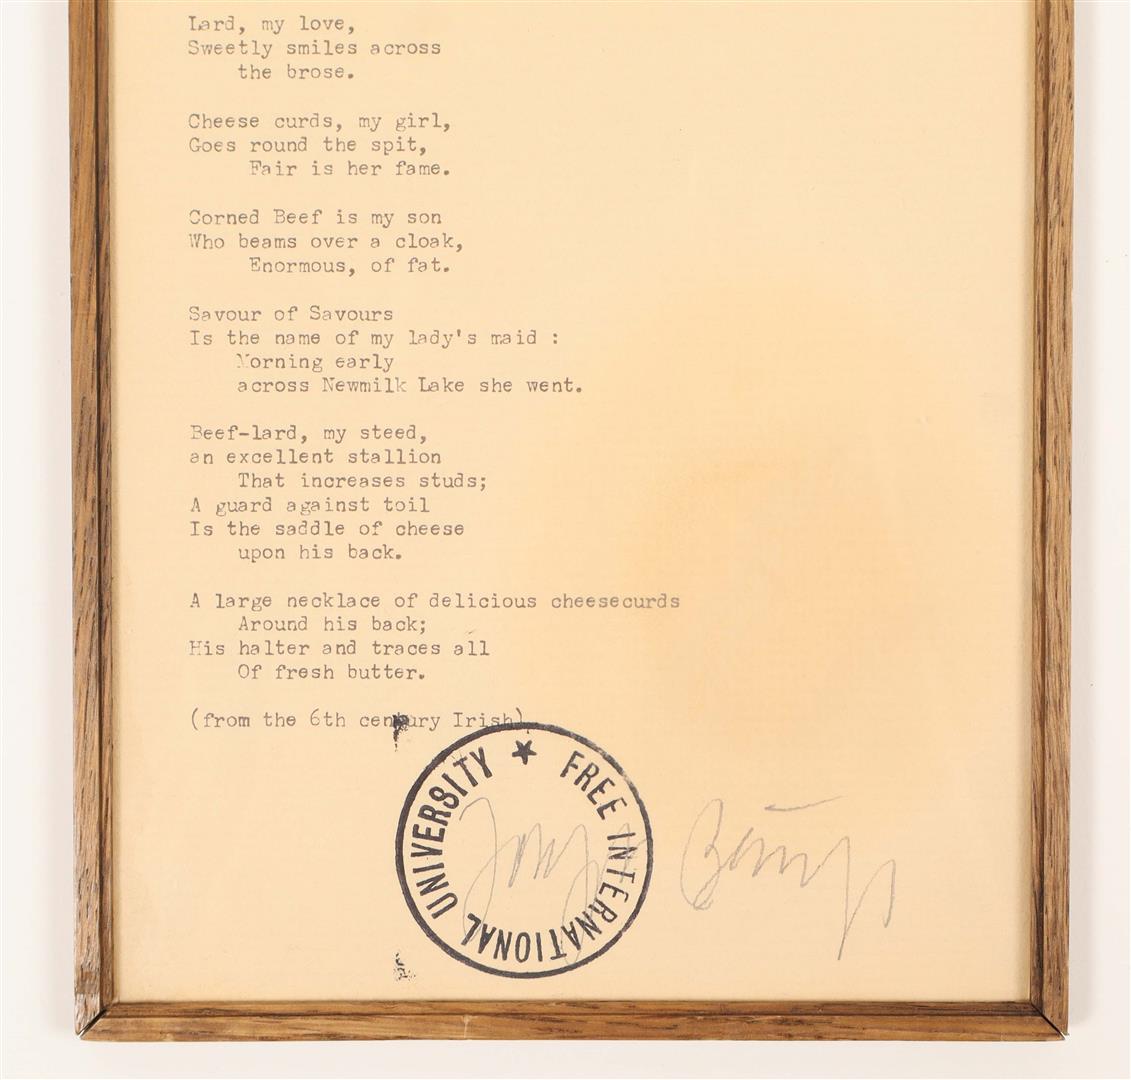 Lard, my love,
Sweetly smiles across
the brose.
Cheese curds, my girl,
Goes round the spit,
Fair is her fame.
Corned Beef is my son
Who beams over a cloak,
Enormous, of fat.
Savour of Savours
Is the name of my lady's maid :
Morning early
across Newmilk Lake she went.
Beef-lard, my steed,
an excellent stallion
That increases studs;
A guard against toil
Is the saddle of cheese
upon his back.
A large necklace of delicious cheesecurds
Around his back;
His halter and traces all
Of fresh butter.
(from the 6th century Irish)
FREE INTERNATIONAL UNIVERSITY
Joseph Beuys